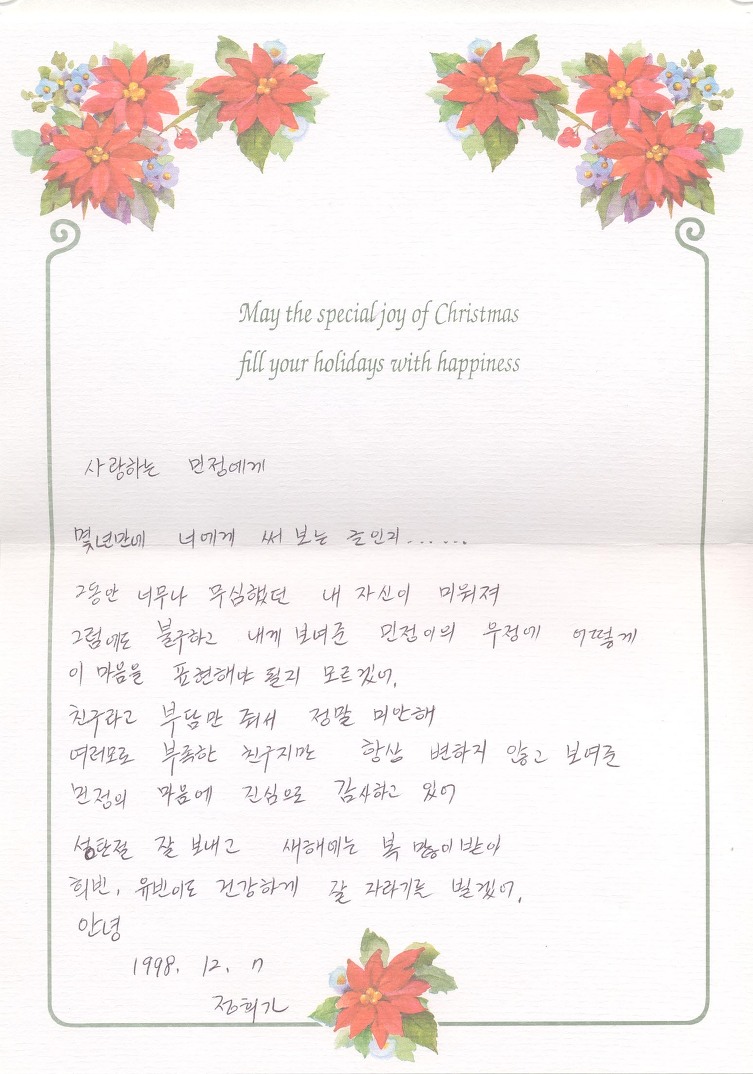 May the special joy of Christmas
fill your holidays with happiness
사랑하는 민정에게
몇년만에 너에게 써 보는 글인지......
그동안 너무나 무심했던 내 자신이 미워져
그럼에도 불구하고 내게 보여준 민정이의 우정에 어떻게
이 마음을 표현해야 될지 모르겠어.
친구라고 부담만 줘서 정말 미안해
여러모로 부족한 친구지만 항상 변하지 않고 보여준
민정의 마음에 진심으로 감사하고 있어
성탄절 잘 보내고 새해에는 복 많이 받아
희빈, 유빈이도 건강하게 잘 자라기를 빌겠어.
안녕
1998. 12. 7
정희가